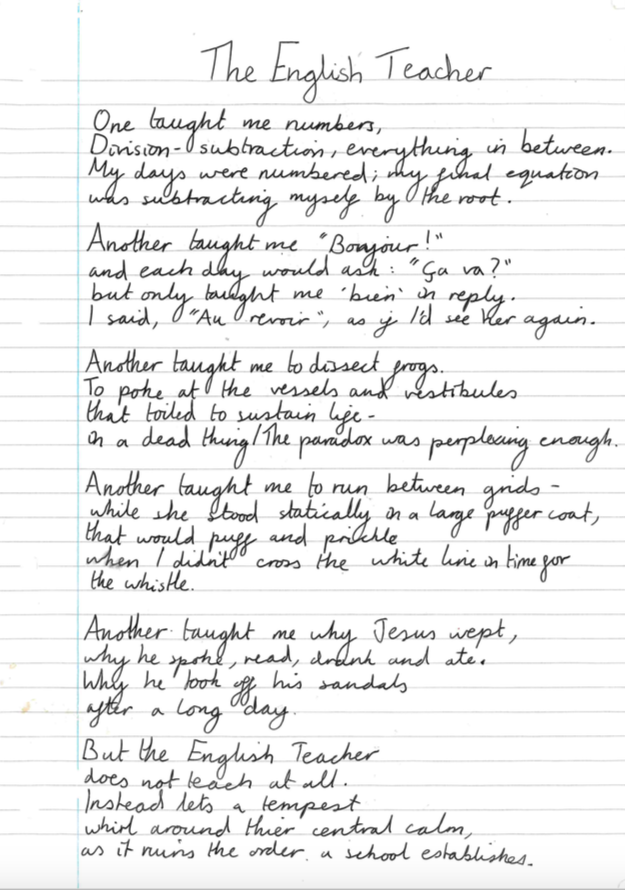 The English Teacher
One taught me numbers,
Division - subtraction, everything in between.
My days were numbered; my final equation
was subtracting myself by the root.
Another taught me "Bonjour!"
and each day would ask: "Ça va?"
but only taught me 'bien' in reply.
I said, "Au revoir", as if I'd see her again.
Another taught me to dissect frogs.
To poke at the vessels and vestibules
that toiled to sustain life -
in a dead thing/The paradox was perplexing enough.
Another taught me to run between grids -
while she stood statically in a large puffer coat,
that would puff and prickle
when I didn't cross the white line in time for
the whistle.
Another taught me why Jesus wept,
why he spoke, read, drank and ate.
Why he took off his sandals
after a long day.
But the English Teacher
does not teach at all.
Instead lets a tempest
whirl around thier central calm,
as it ruins the order a school establishes.